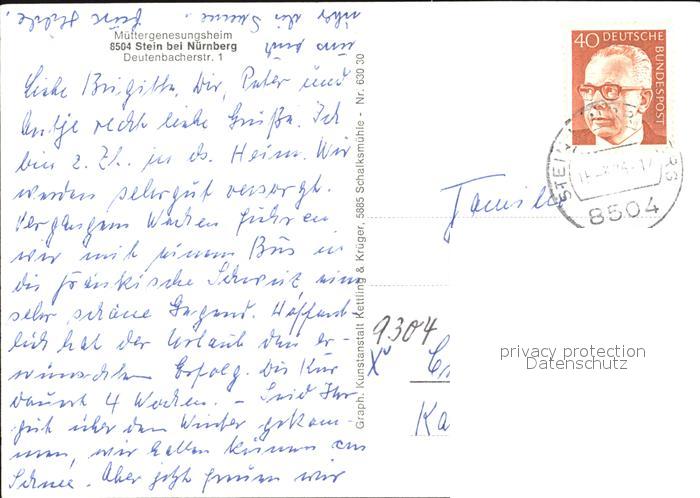 Müttergenesungsheim
8504 Stein bei Nürnberg
Deutenbacherstr. 1
Liebe Brigitte, Dir, Peter und
Antje recht liebe Grüße. Ich
bin z. Zt. in ds. Heim. Wir
werden sehr gut versorgt.
Vergangene Wochen fuhren
wir mit einem Bus in
die fränkische Schweiz, eine
sehr schöne Gegend. Hoffent-
lich hat der Urlaub den er-
wünschten Erfolg. Die Kur
dauert 4 Wochen. – Seid Ihr
gut über den Winter gekom-
men, wir hatten keinen
Schnee. Aber jetzt freuen wir
uns auch
über die Sonne. Eure
Graph. Kunstanstalt Kettling & Krüger, 5885 Schalksmühle - Nr. 630 30
40 DEUTSCHE
BUNDESPOST
STEIN
8504
Familie
9304
Ka
privacy protection
Datenschutz